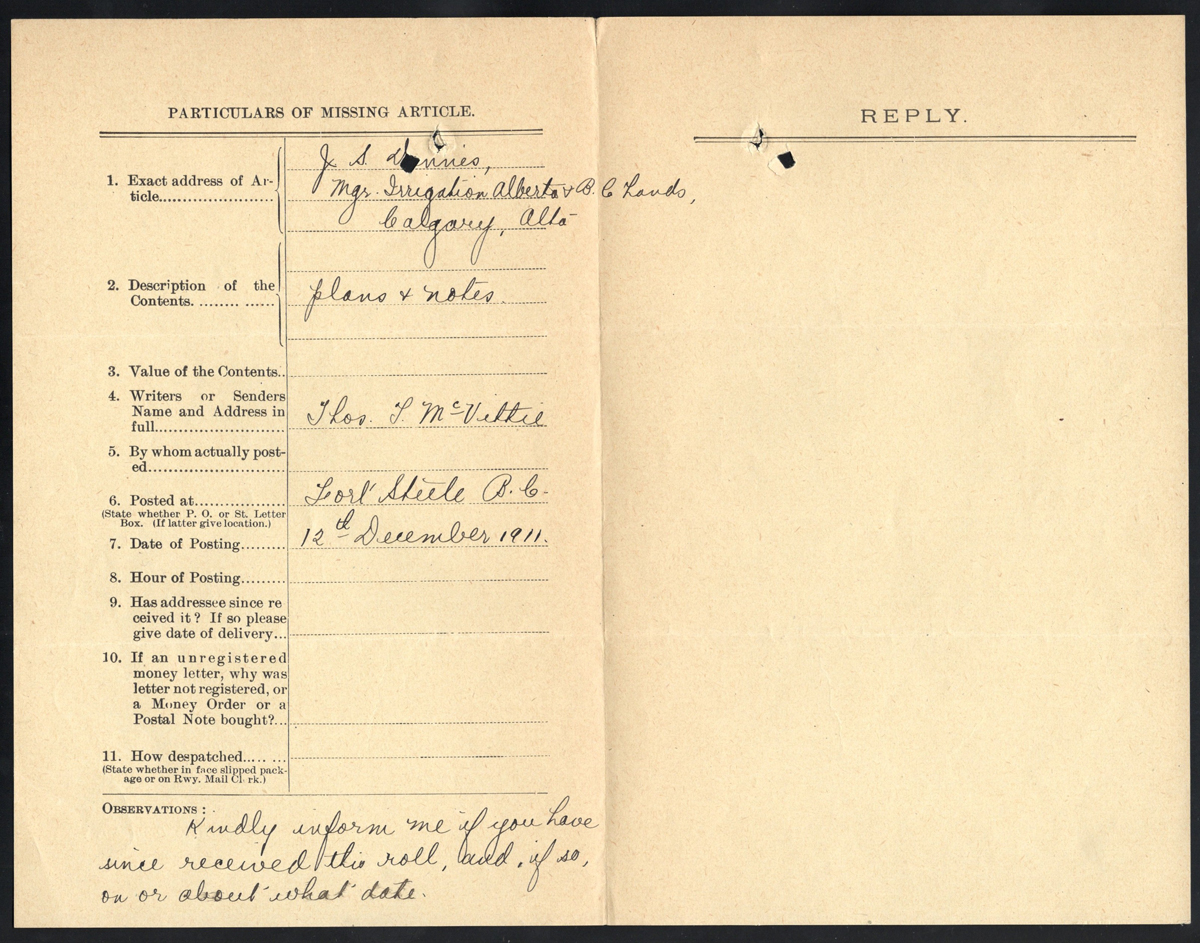 PARTICULARS OF MISSING ARTICLE.
1. Exact address of Ar-
ticle....................
J. S. Dennis,
Mgr. Irrigation Alberta & B. C Lands,
Calgary, Alta
2. Description of the
Contents. ........ ......
plans & notes.
3. Value of the Contents..
4. Writers or Senders
Name and Address in
full.......................
Thos. T. McVittie
5. By whom actually post-
ed........................
6. Posted at................
Fort Steele B. C.
(State whether P. O. or St. Letter
Box. (If latter give location.)
7. Date of Posting.........
12th December 1911.
8. Hour of Posting.........
9. Has addressee since re
ceived it? If so please
give date of delivery...
10. If an unregistered
money letter, why was
letter not registered, or
a Money Order or a
Postal Note bought?...
11. How despatched..... ...
(State whether in face slipped pack-
age or on Rwy. Mail Cl rk.)
OBSERVATIONS :
Kindly inform me if you have
since received this roll, and, if so,
on or about what date.
REPLY.